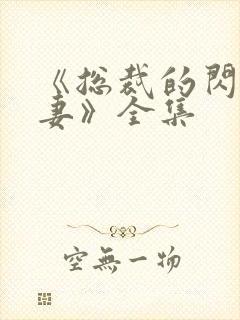 《总裁的閃
妻》全集
空無一物